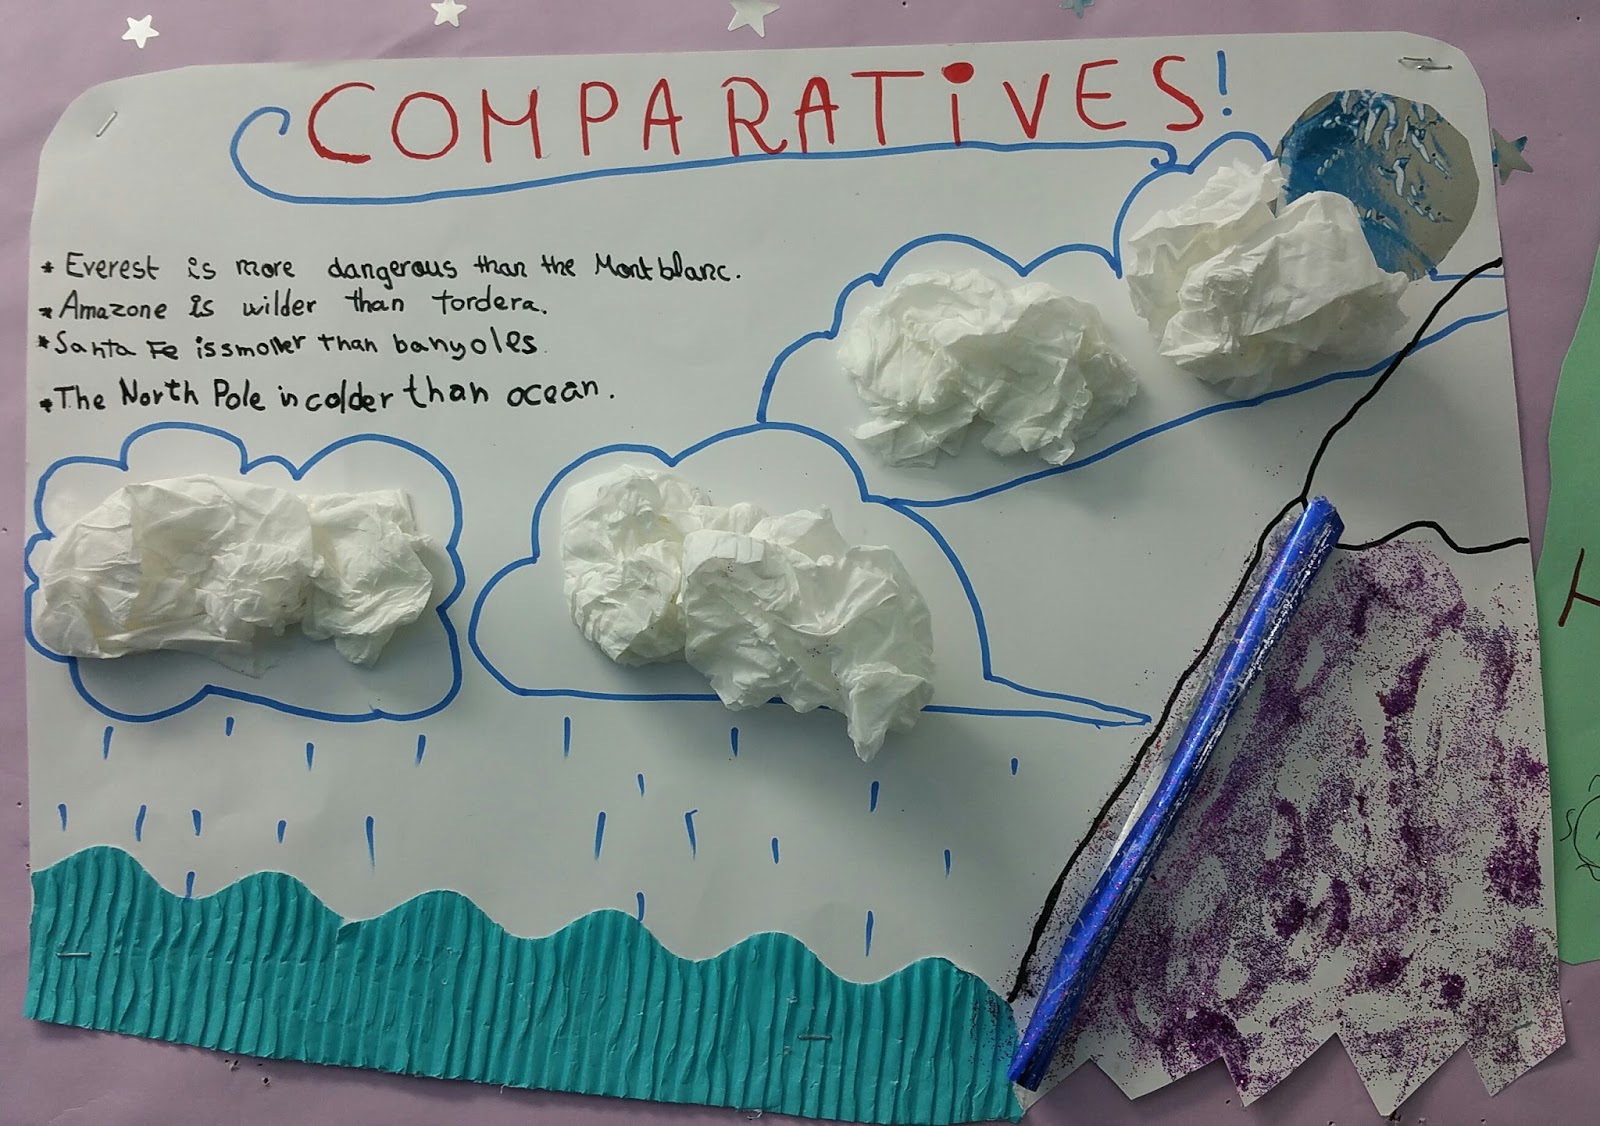 COMPARATiVES!
* Everest is more dangerous than the Mont blanc.
* Amazone is wilder than tordera.
* Santa Fe is smaller than banyoles.
* The North Pole in colder than ocean.
H